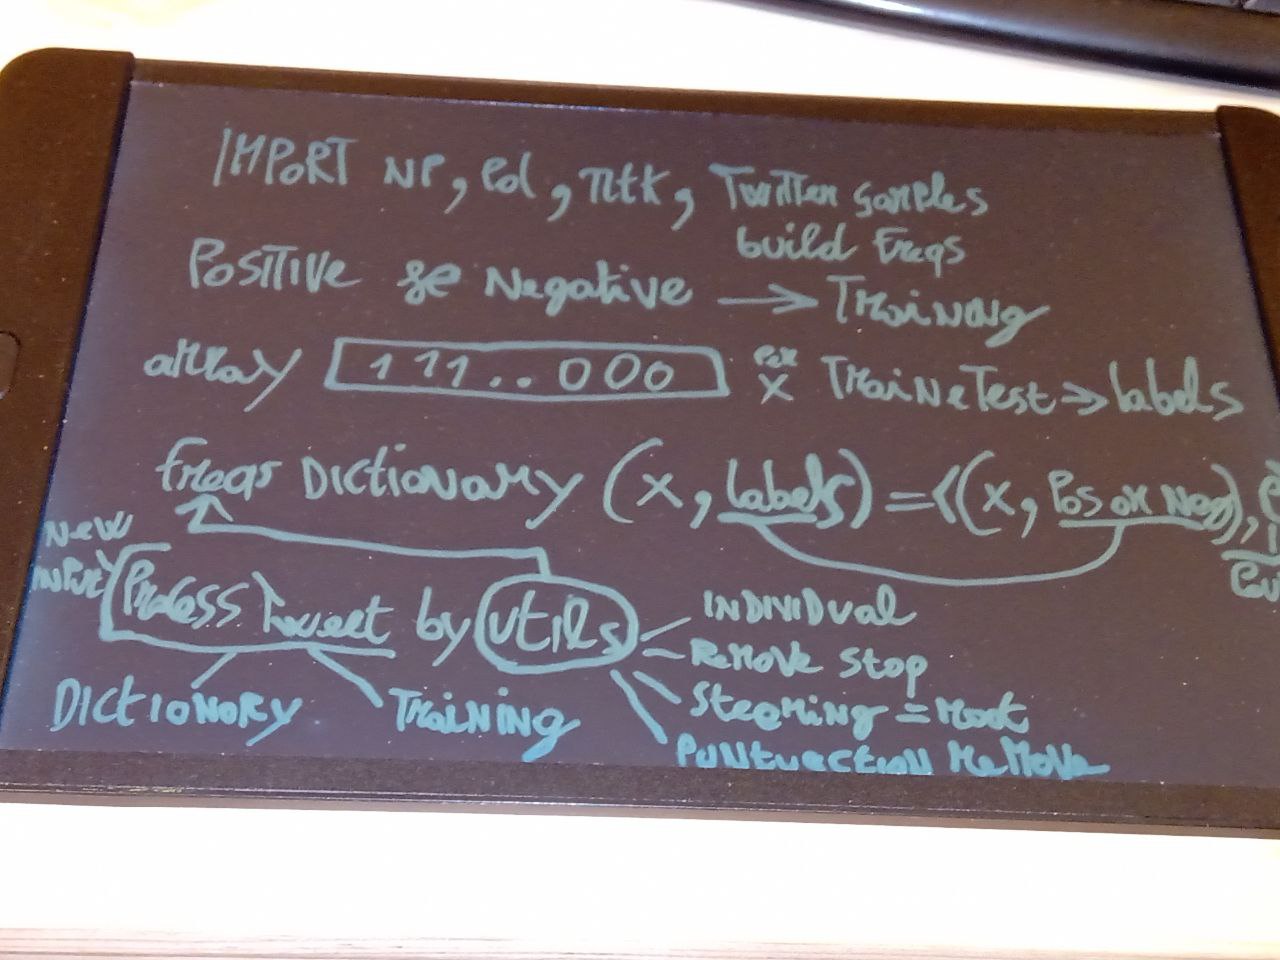 IMPORT NP, pd, nltk, Twitter samples
build freqs
POSITIVE se Negative → Training
array 111..000 per X Train e Test ⇒ labels
freqs Dictionary (x, labels) = <(x, Pos or Neg),
New
input Process tweet by utils
INDIVIDUAL
Remove stop
Steeming = root
Puntuaction remove
Dictionory Training